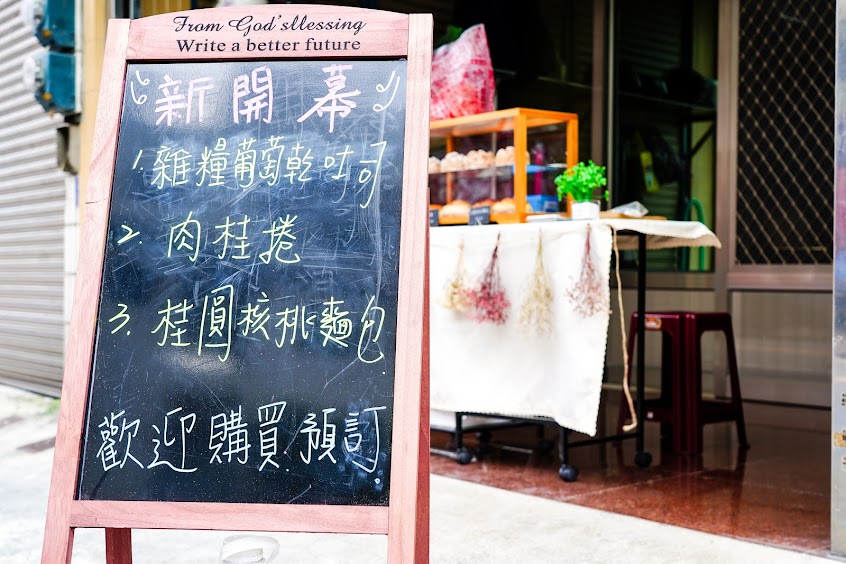 From God'sllessing
Write a better future
新開幕
1. 雜糧葡萄乾吐司
2. 肉桂捲
3. 桂圓核桃麵包
歡迎購買預訂